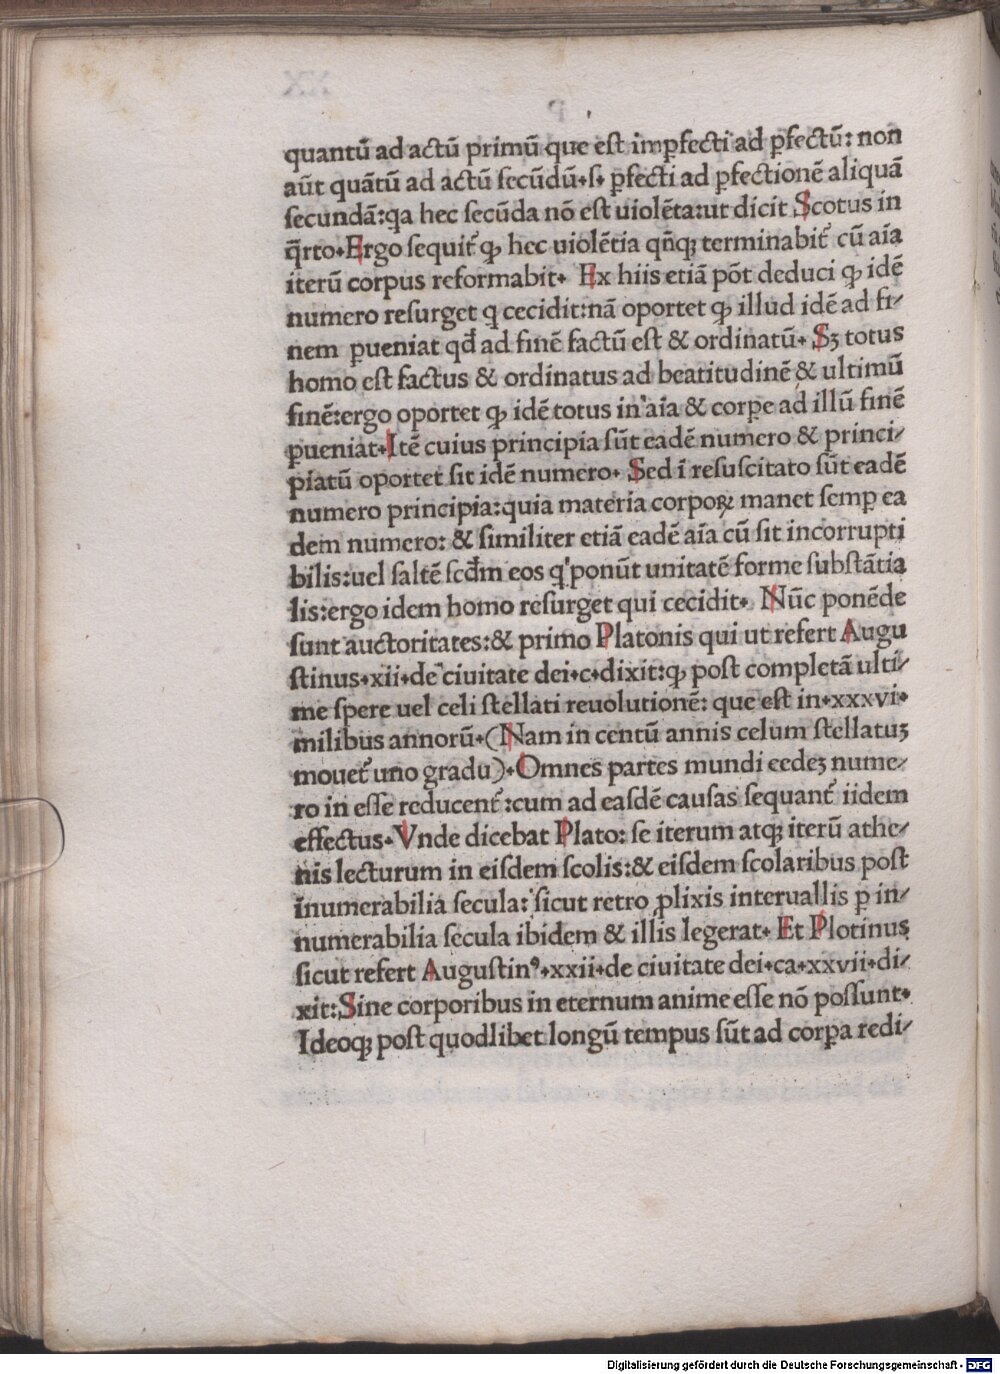 quantū ad actū primū que est imꝑfecti ad ꝑfectū: non
aūt quātū ad actū secūdū·s· ꝑfecti ad ꝑfectionē aliquā
secundā:qa hec secūda nō est uiolēta:ut dicit Scotus in
q̄rto·Ergo sequit᷑ ꝙ hec uiolētia qn̄qꝫ terminabit᷑ cū aīa
iterū corpus reformabit· Ex hiis etiā pōt deduci ꝙ idē
numero resurget q cecidit:nā oportet ꝙ illud idē ad fi⸗
nem ꝑueniat qđ ad finē factū est & ordinatū· Sꝫ totus
homo est factus & ordinatus ad beatitudinē & ultimū
finē:ergo oportet ꝙ idē totus in aīa & corpe ad illū finē
ꝑueniat·Itē cuius principia sūt eadē numero & princi⸗
piatū oportet sit idē numero· Sed ī resuscitato sūt eadē
numero principia:quia materia corpoꝝ manet semꝑ ea
dem numero: & similiter etiā eadē aīa cū sit incorrupti
bilis:uel saltē scđm eos q' ponūt unitatē forme substātia
lis:ergo idem homo resurget qui cecidit· Nūc ponēde
sunt auctoritates:& primo Platonis qui ut refert Augu
stinus·xii·de ciuitate dei·c·dixit:ꝙ post completā ulti⸗
me spere uel celi stellati reuolutionē: que est in·xxxvi·
milibus annorū·(Nam in centū annis celum stellatuꝫ
mouet᷑ uno gradu)·Omnes partes mundi eedeꝫ nume⸗
ro in esse reducent᷑:cum ad easdē causas sequant᷑ iidem
effectus·Vnde dicebat Plato: se iterum atqꝫ iterū athe⸗
nis lecturum in eisdem scolis:& eisdem scolaribus post
īnumerabilia secula: sicut retro ꝓlixis interuallis ꝑ in⸗
numerabilia secula ibidem & illis legerat· Et Plotinus
sicut refert Augustinꝰ·xxii·de ciuitate dei·ca·xxvii·di⸗
xit:Sine corporibus in eternum anime esse nō possunt·
Ideoqꝫ post quodlibet longū tempus sūt ad corꝑa redi⸗
Digitalisierung gefördert durch die Deutsche Forschungsgemeinschaft - DFG